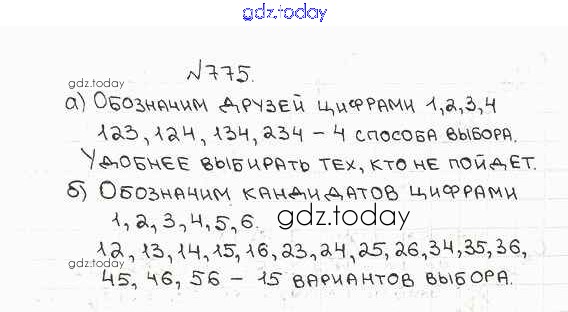 gdz.today
№775.
gdz.today
а) Обозначим друзей цифрами 1,2,3,4
123, 124, 134, 234 – 4 способа выбора.
Удобнее выбирать тех, кто не пойдет.
б) Обозначим кандидатов цифрами
1, 2, 3, 4, 5, 6.
gdz.today
12, 13, 14, 15, 16, 23, 24, 25, 26, 34, 35, 36,
gdz.today
45, 46, 56 – 15 вариантов выбора.